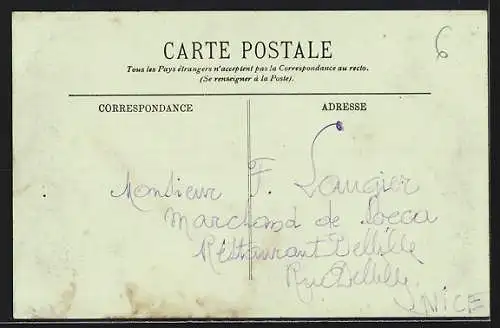 6
CARTE POSTALE
Tous les Pays étrangers n'acceptent pas la Correspondance au recto.
(Se renseigner à la Poste).
CORRESPONDANCE
ADRESSE
Monsieur F. Laugier
Marchand de Socca
Réstaurant Bellille
Rue Bellille
NICE